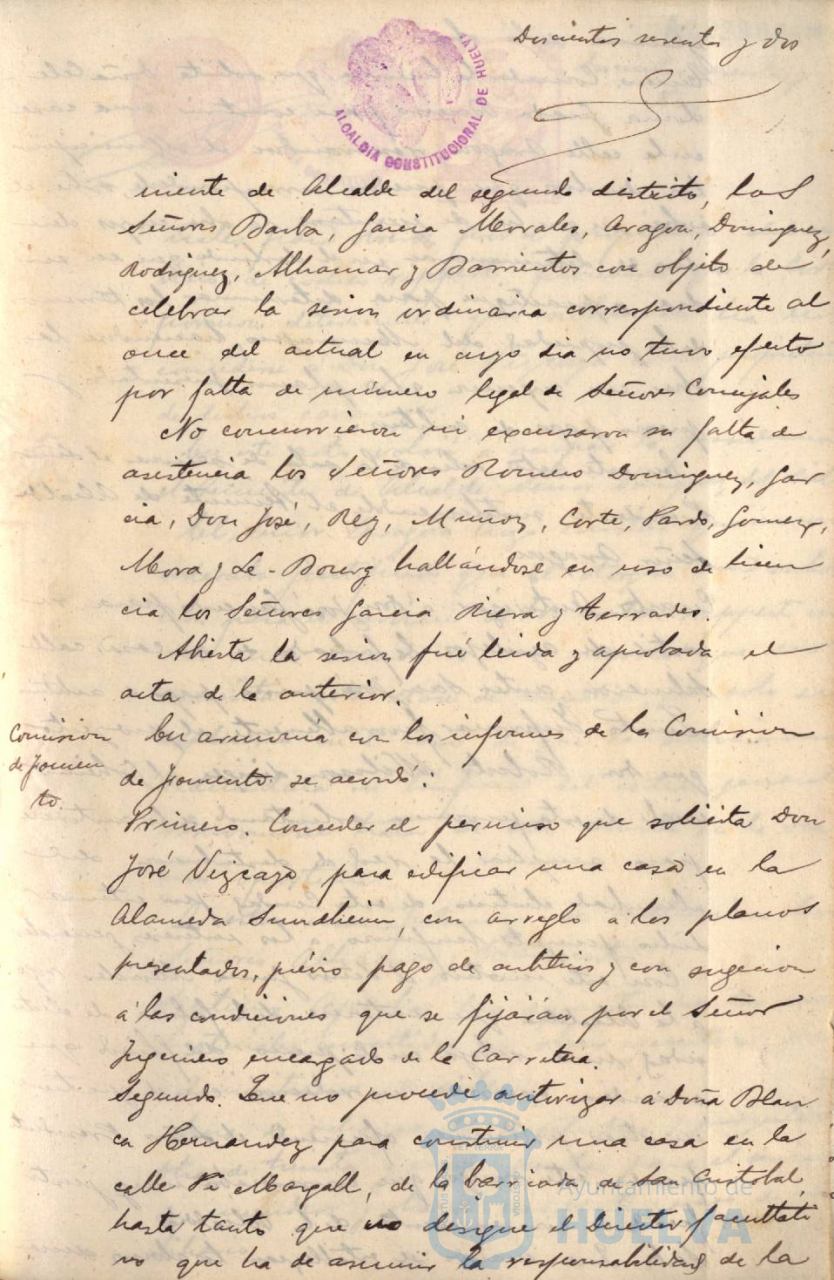 Doscientos sesenta y dos
ALCALDIA CONSTITUCIONAL DE HUELVA
niente de Alcalde del segundo distrito, los
Señores Barba, Garcia Morales, Aragon, Dominguez,
Rodriguez, Alhamar y Barrientos con objeto de
celebrar la sesion ordinaria correspondiente al
once del actual en cuyo dia no tuvo efecto
por falta de número legal de Señores Concejales
No concurrieron ni excusaron su falta de
asistencia los Señores Romero Dominguez, Gar
cia, Don José, Rey, Muñoz, Corte, Pardo, Gomez,
Mora y Le-Bourg hallándose en uso de licen
cia los Señores Garcia Riera y Terrades.
Abierta la sesion fué leida y aprobada el
acta de la anterior.
Comision
de Fomen
to.
En armonía con los informes de la Comision
de Fomento se acordó:
Primero. Conceder el permiso que solicita Don
José Vizcayo para edificar una casa en la
Alameda Sundheim, con arreglo a los planos
presentados, prévio pago de arbitrios y con sugecion
á las condiciones que se fijarán por el Señor
Ingeniero encargado de la Carretera.
Segundo. Que no procede autorizar á Doña Blan
ca Hernandez para construir una casa en la
calle Pi Margall, de la barriada de San Cristobal,
hasta tanto que no designe el Director facultati
vo que ha de asumir la responsabilidad de la
Ayuntamiento de
HUELVA